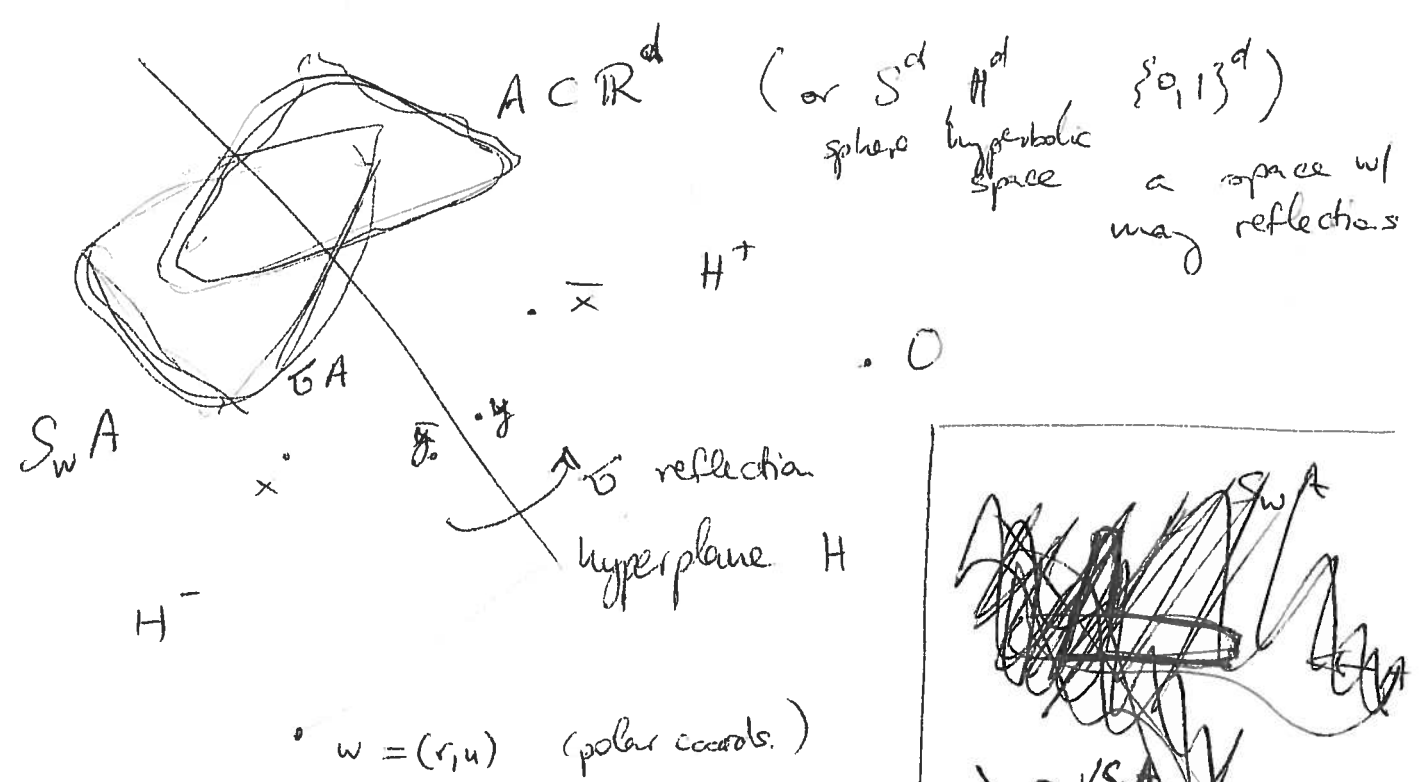 A ⊂ ℝ^d (or S^d H^d {0,1}^d)
sphere hyperbolic space
a space w/
many reflections
H^+
. x̄
. O
σA
S_w A
. y
ȳ .
x .
σ reflection
hyperplane H
H^-
S_w A
. w = (r,u) (polar coords.)